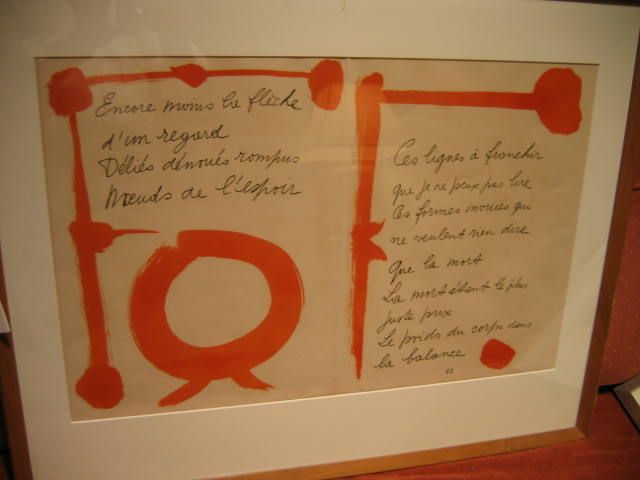 Encore moins la flèche
d'un regard
Déliés dénoués rompus
Nœuds de l'espoir
Ces lignes à franchir
que je ne peux pas lire
Ces formes inouïes qui
ne veulent rien dire
Que la mort
La mort étant le plus
juste prix
Le poids du corps dans
la balance